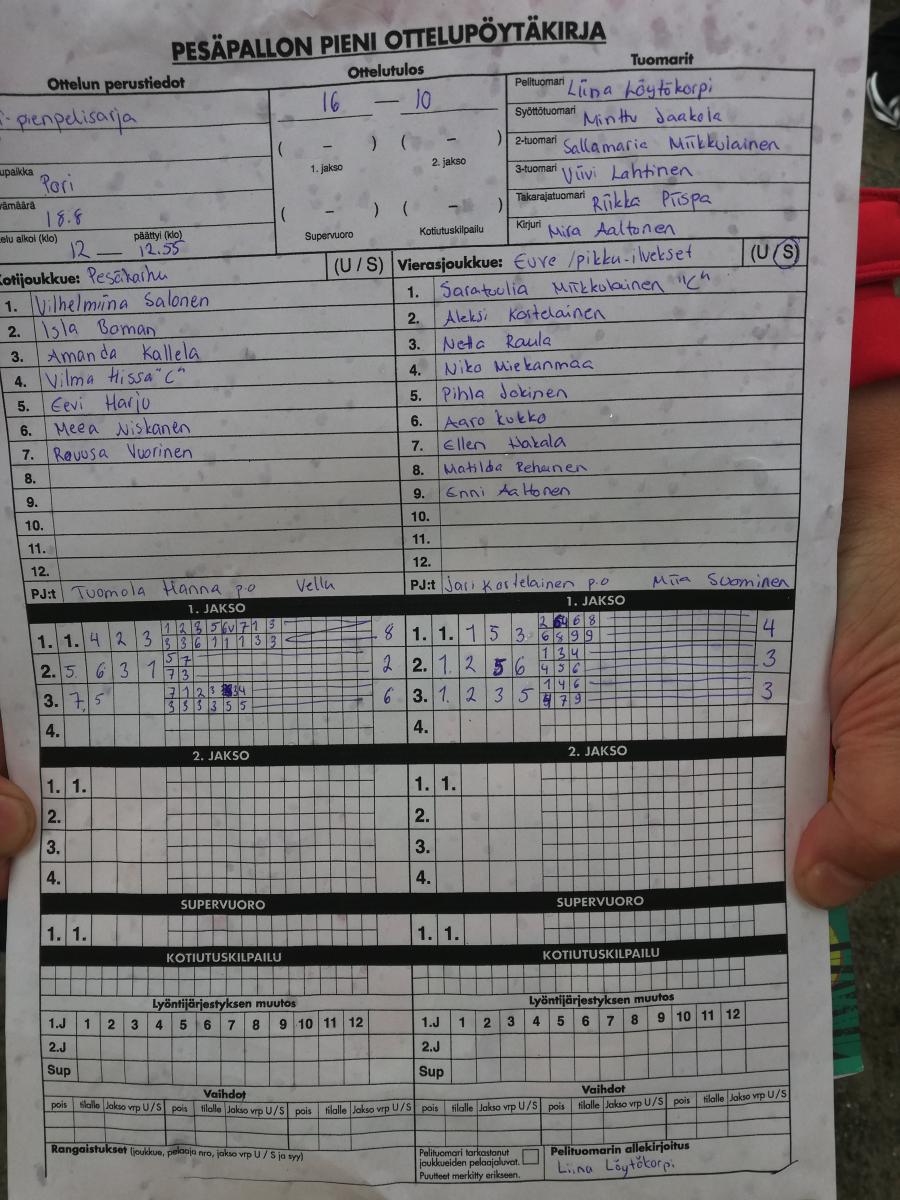 PESÄPALLON PIENI OTTELUPÖYTÄKIRJA
Ottelun perustiedot
Ottelutulos
Tuomarit
-pienpelisarja
16 — 10
Pelituomari Liina Löytökorpi
Syöttötuomari Minttu Jaakola
( – ) ( – )
2-tuomari Sallamaria Miikkulainen
1. jakso 2. jakso
upaikka Pori
3-tuomari Viivi Lahtinen
vämäärä 18.8
Takarajatuomari Riikka Piispa
( – ) ( – )
Supervuoro Kotiutuskilpailu
elu alkoi (klo) 12 — päättyi (klo) 12.55
Kirjuri Mira Aaltonen
Kotijoukkue: Pesäkarhu (U / S)
Vierasjoukkue: Eure /pikku-ilvekset (U / S)
1. Vilhelmiina Salonen
2. Isla Boman
3. Amanda Kallela
4. Vilma Hissa "C"
5. Eevi Harju
6. Meea Niskanen
7. Vuorinen
8.
9.
10.
11.
12.
PJ:t Tuomola Hanna p.o Vellu
1. Saratuulia Miikkulainen "C"
2. Aleksi Kostelainen
3. Netta Raula
4. Niko Miekanmaa
5. Pihla Jokinen
6. Aaro Kukko
7. Ellen Hakala
8. Matilda
9. Enni Aaltonen
10.
11.
12.
PJ:t Jari Kostelainen p.o Miia Suominen
1. JAKSO
1. 1. 4 2 3 8
3 3 6 1 1 1 3 3
2. 5 6 3 1 5 7 2
7 3
3. 7, 5 6
3 3 3 3 5 5
4.
1. JAKSO
1. 1. 1 5 3 4
6 8 9 9
2. 1. 2 5 6 1 3 4 3
4 5 6
3. 1. 2 3 5 1 4 6 3
7 9
4.
2. JAKSO
1. 1.
2.
3.
4.
2. JAKSO
1. 1.
2.
3.
4.
SUPERVUORO
1. 1.
SUPERVUORO
1. 1.
KOTIUTUSKILPAILU
KOTIUTUSKILPAILU
Lyöntijärjestyksen muutos
1.J 1 2 3 4 5 6 7 8 9 10 11 12
2.J
Sup
Lyöntijärjestyksen muutos
1.J 1 2 3 4 5 6 7 8 9 10 11 12
2.J
Sup
Vaihdot
pois tilalle Jakso vrp U/S pois tilalle Jakso vrp U/S pois tilalle Jakso vrp U/S
Vaihdot
pois tilalle Jakso vrp U/S pois tilalle Jakso vrp U/S pois tilalle Jakso vrp U/S
Rangaistukset (joukkue, pelaaja nro, jakso vrp U / S ja syy)
Pelituomari tarkastanut
joukkueiden pelaajaluvat.
Puutteet merkitty erikseen.
Pelituomarin allekirjoitus
Liina Löytökorpi